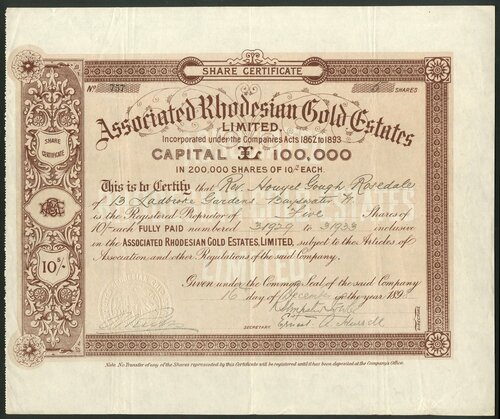 SHARE CERTIFICATE
No 757
5 SHARES
Associated Rhodesian Gold Estates
LIMITED.
Incorporated under the Companies Acts 1862 to 1893.
CAPITAL £ 100,000
IN 200,000 SHARES OF 10/- EACH.
This is to Certify that Rev. Gough Rosedale
of 13 Ladbroke Gardens Bayswater W.
is the Registered Proprietor of Five Shares of
10/- each FULLY PAID numbered 31929 to 31933 inclusive
in the ASSOCIATED RHODESIAN GOLD ESTATES, LIMITED, subject to the Articles of
Association and other Regulations of the said Company.
Given under the Common Seal of the said Company
16 day of December in the year 189
SECRETARY
Ernest A.
SHARE
CERTIFICATE
10/-
Note. No Transfer of any of the Shares represented by this Certificate will be registered until it has been deposited at the Company's Office.